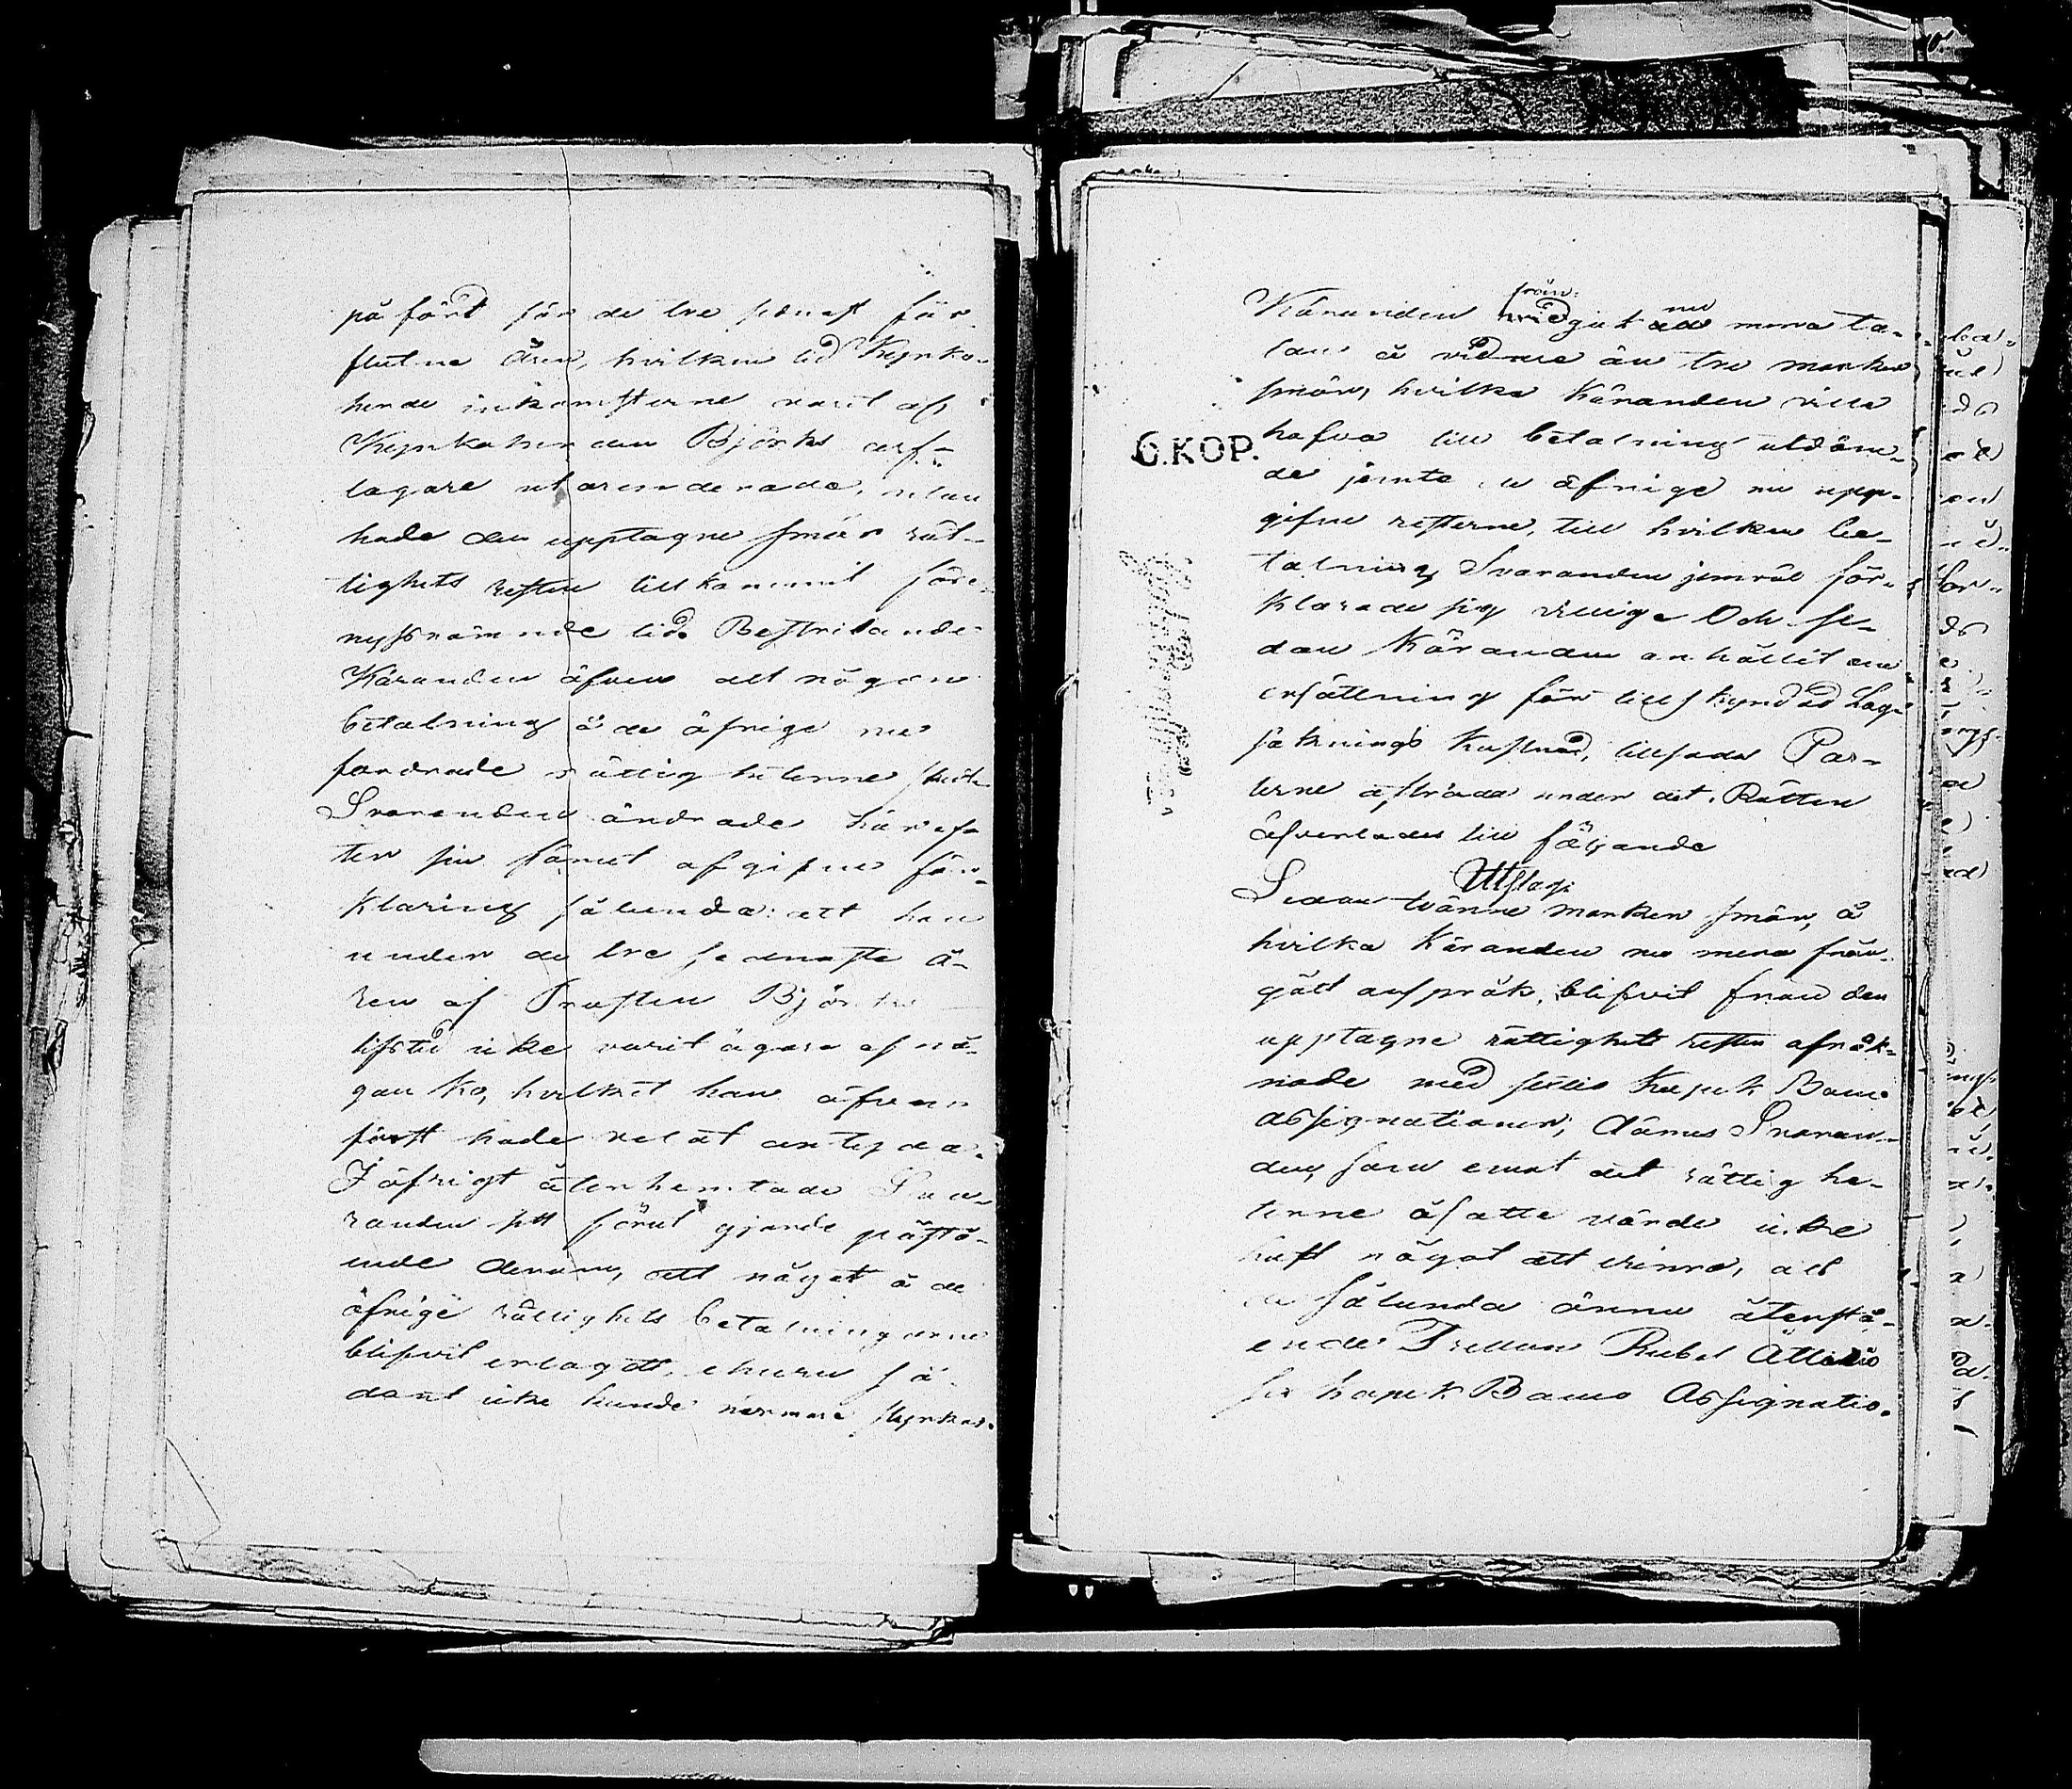 på fördt för de tre sednast för
flutne åren, hvilken tid Kyrko-
herde inkomsterne varit af
Kyrkoherden Björks arf-
tagare utarrenderade, utan
hade den upptagne smör rät-
tighets resten tillkommit före
nyssnämnde tid. Bestridande
Käranden äfven att någon
betalning å de öfrige nu
fordrade rättigheterne skett.
Svaranden ändrade häref-
ter sin förut afgifne för-
klaring sålunda: att han
under de tre sednaste å-
ren af Prosten Björks
lifstid icke varit ägare af nå-
gon ko, hvilket han äfven
först hade velat antyda.
I öfrigt återhemtade Sva-
randen sitt förut gjorde påstå-
ende derom, att något å de
öfrige rättighets betalningarne
blifvit erlagdt, ehuru så-
dant icke kunde närmare styrkas.
Käranden från-
gick nu mera ta-
lan å vidare än tre marker
smör, hvilka Käranden ville
hafva till betalning utdöm-
6.KOP.
de jemte de öfrige nu upp-
gifne resterne, till hvilken be-
talning Svaranden jemväl för-
klarade sig villig. Och se-
dan Käranden anhållit om
ersättning för tillskyndad Lag-
söknings kostnad, tillsades Par-
terne afträda under det Rätten
öfverlades till följande
Utslag:
Sedan tvänne marker smör, å
hvilka Käranden nu mera från-
gått anspråk, blifvit från den
upptagne rättighets resten afräk-
nade med sextio Kopek Banco
assignationer, dömes Svaran-
den, som emot det rättighe-
terne åsatte värde icke
haft något att vinna, att
de sålunda ännu återstå-
ende Tretton Rubel Åttatio
sex kopek Banco Assignatio-